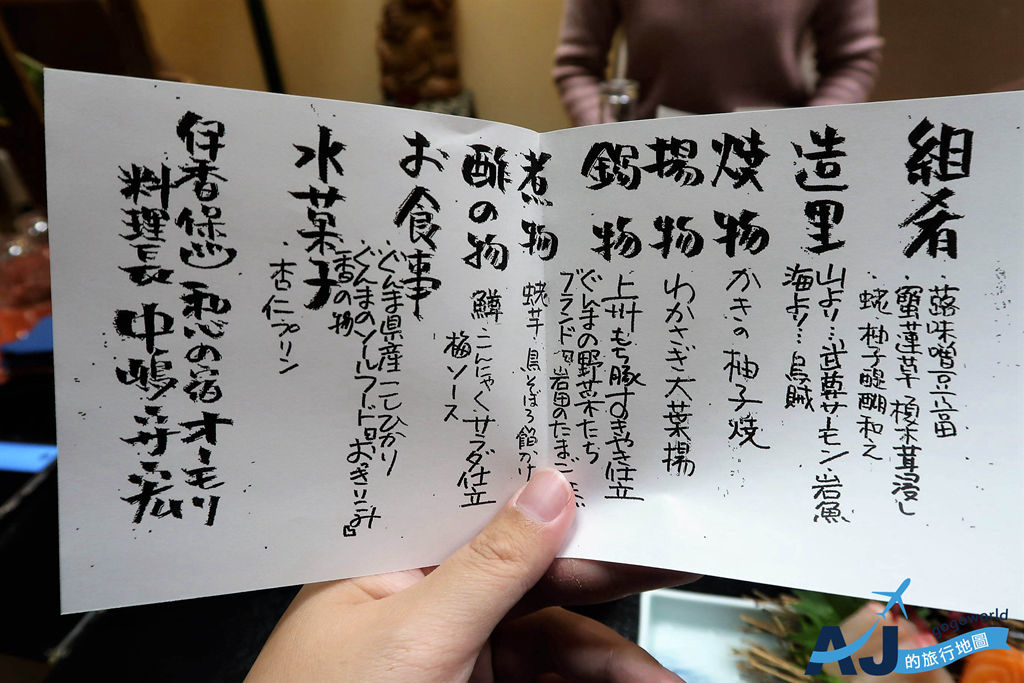 組肴
・蕗味噌豆富
・蟹蓮草 榎木茸浸し
・蛯 柚子醍醐和え
造里
山より…武尊サーモン・岩魚
海より…烏賊
焼物
かきの柚子焼
揚物
わかさぎ大葉揚
鍋物
上州もち豚すきやき仕立
ぐんまの野菜たち
ブランド卵岩田のたまご
煮物
蛯芋 鳥そぼろ餡かけ
酢の物
鱒 こんにゃくサラダ仕立
梅ソース
お食事
・ぐんま県産こしひかり
・ぐんまのソールフード『おきりこみ』
・香の物
水菓子
・杏仁プリン
伊香保 和心の宿 オーモリ
料理長 中嶋
gogoworld
AJ
的旅行地圖